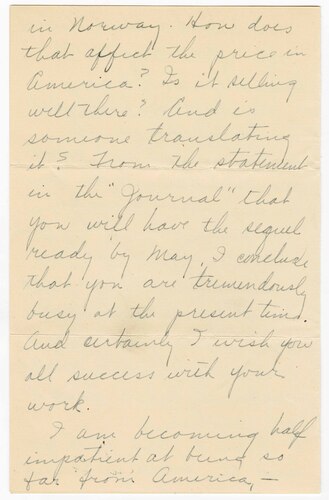 in Norway. How does
that affect the price in
America? Is it selling
well there? And is
someone translating
it? From the statement
in the "Journal" that
you will have the sequel
ready by May, I conclude
that you are tremendously
busy at the present time.
And certainly I wish you
all success with your
work.
I am becoming half
impatient at being so
far from America, —